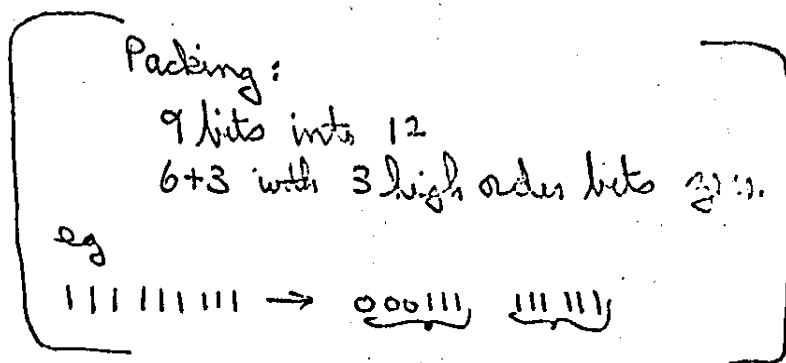 Packing:
9 bits into 12
6+3 with 3 high order bits
eg
111 111 111 → 000111 111 111